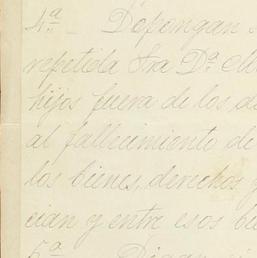 4.ª — Dopongan
repetida Sra D.ª
hijos fuera de los
al fallecimiento de
los bienes, derechos y
cian y entre esos
5.ª Digan